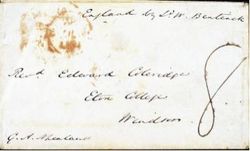 England by Ld W. Bentinck
Revd Edward Coleridge
Eton College
Windsor
8
G. A. N. Zealand